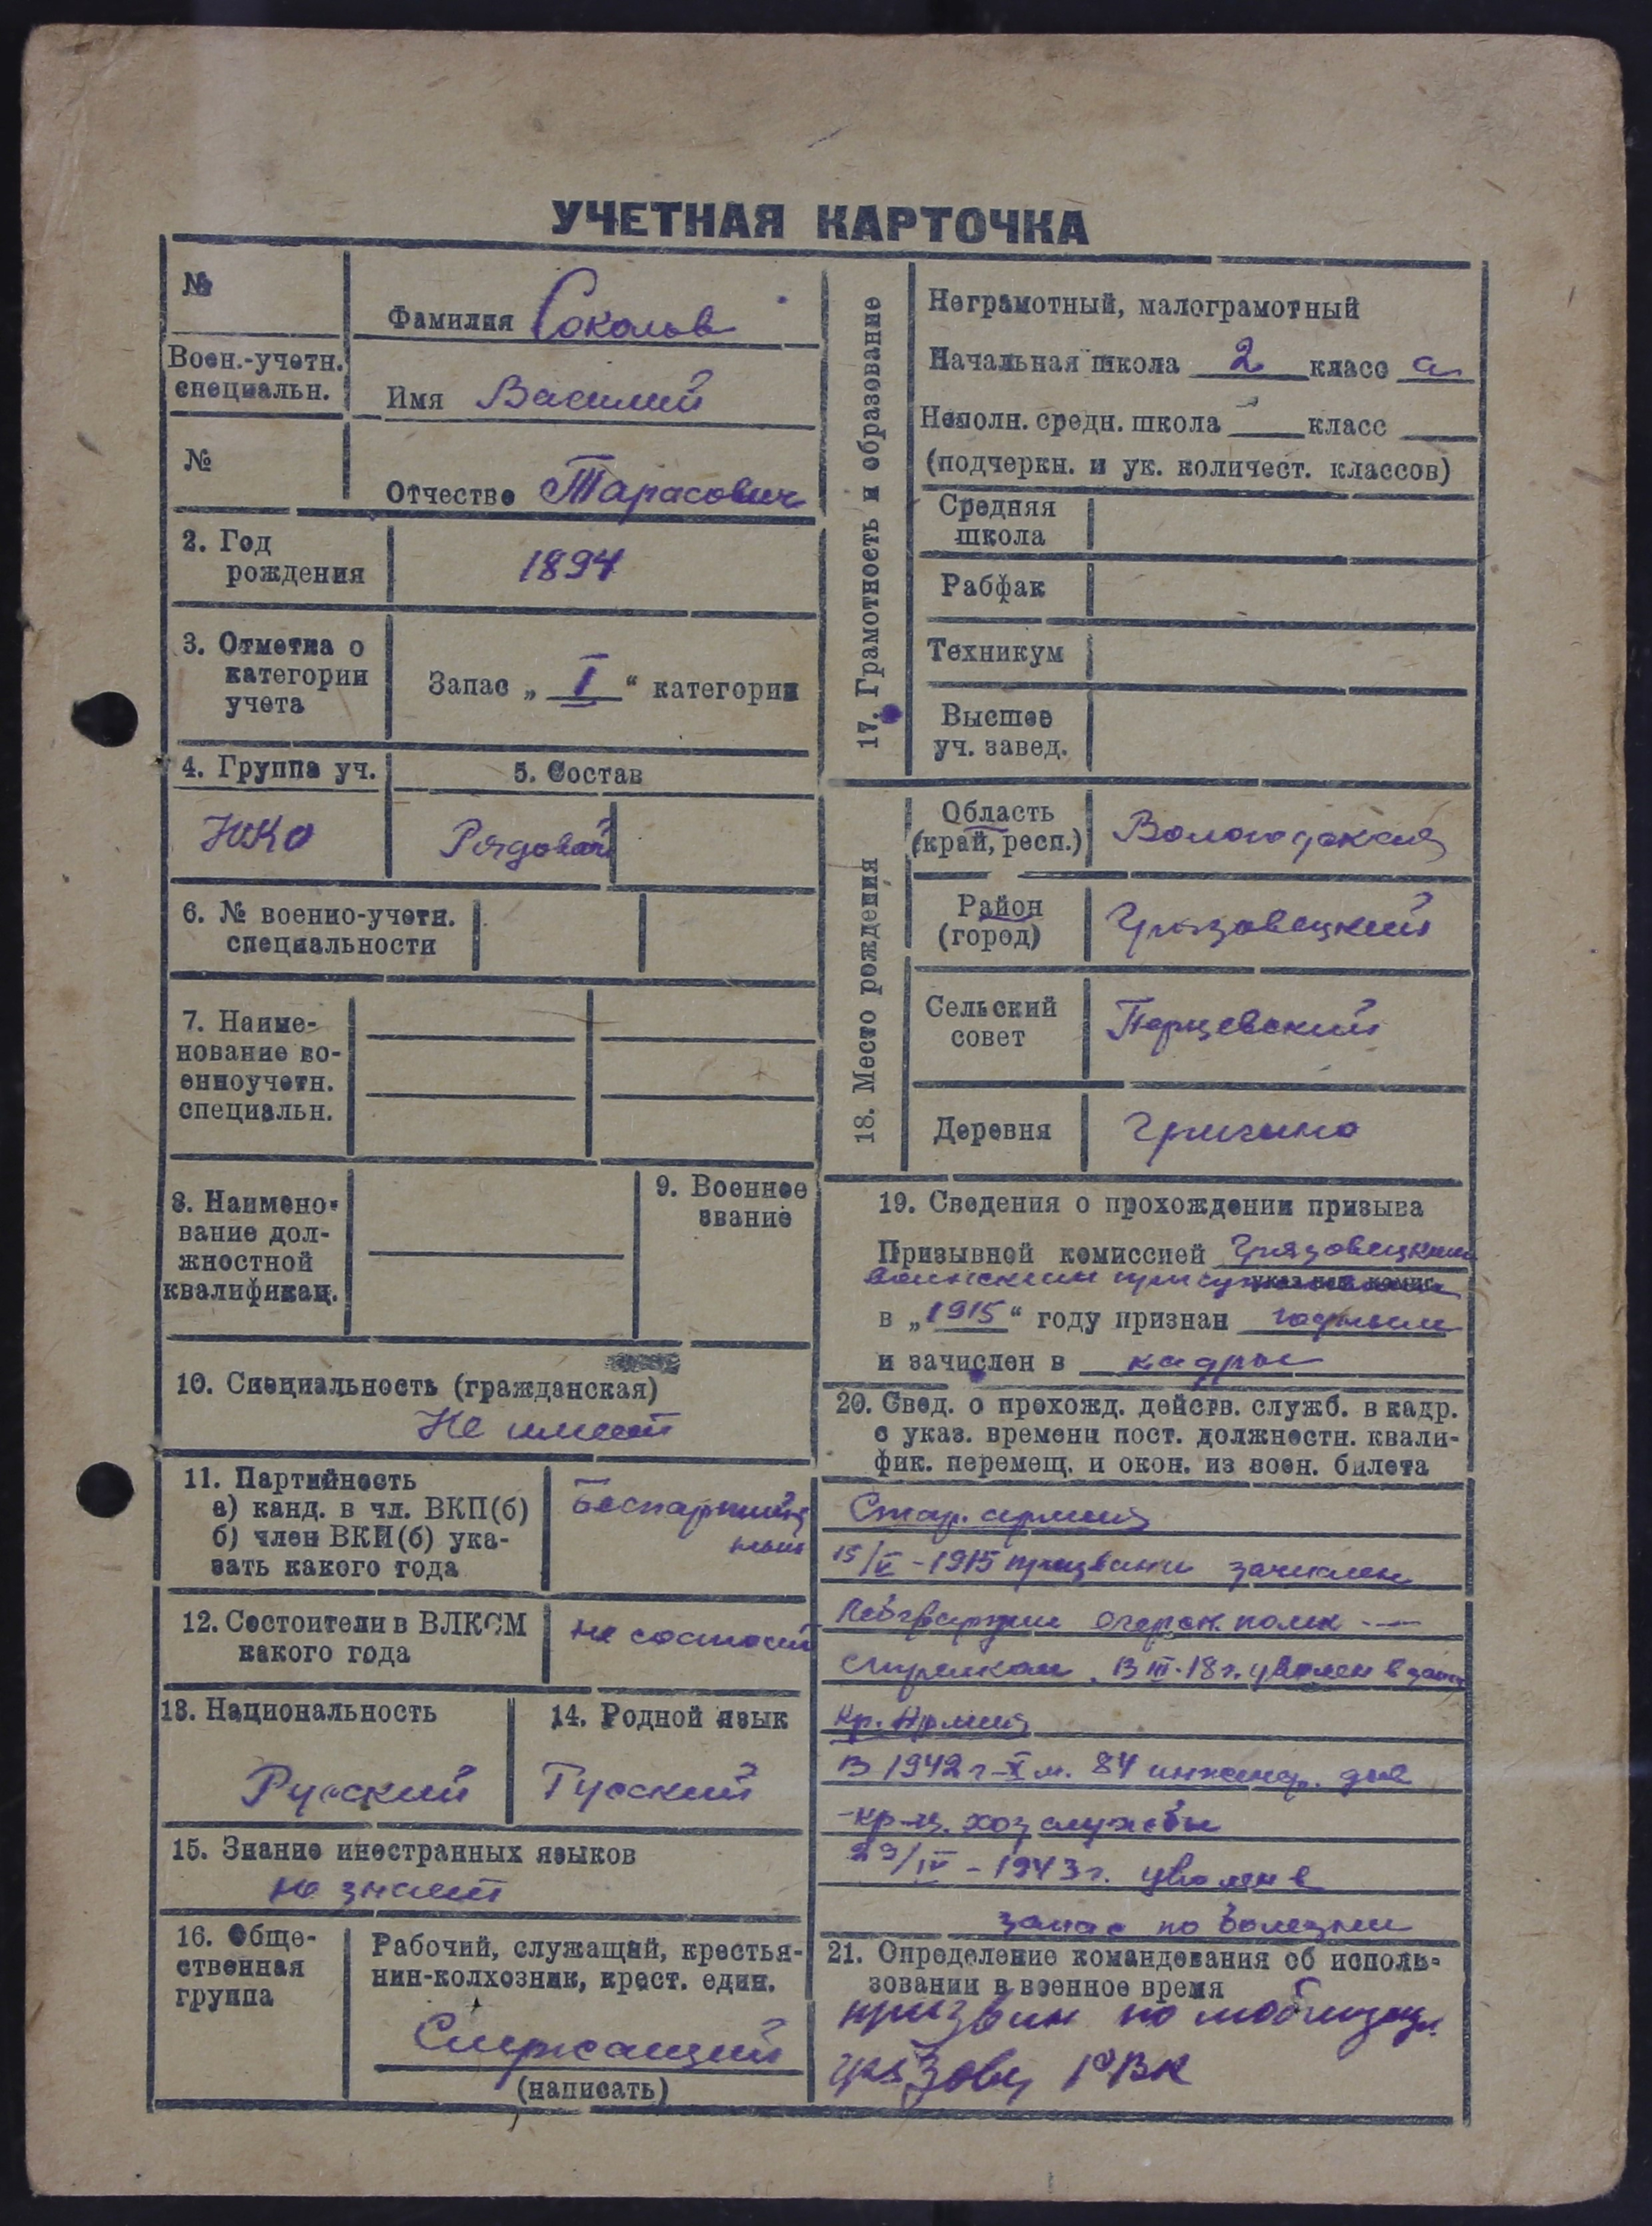 УЧЕТНАЯ КАРТОЧКА
№
Фамилия Соколов
Воен.-учетн.
специальн.
Имя Василий
№
Отчество Тарасович
2. Год
рождения
1894
3. Отметка о
категории
учета
Запас „ I “ категории
4. Группа уч.
НКО
5. Состав
Рядовой
6. № военно-учетн.
специальности
7. Наиме-
нование во-
енноучетн.
специальн.
8. Наимено-
вание дол-
жностной
квалификац.
9. Военное
звание
10. Специальность (гражданская)
Не имеет
11. Партийность
а) канд. в чл. ВКП(б)
б) член ВКП(б) ука-
зать какого года
12. Состоит ли в ВЛКСМ
какого года
не состоит
13. Национальность
Русский
14. Родной язык
Русский
15. Знание иностранных языков
не знает
16. Обще-
ственная
группа
Рабочий, служащий, крестья-
нин-колхозник, крест. един.
Служащий
(написать)
17. Грамотность и образование
Неграмотный, малограмотный
Начальная школа 2 класс а
Неполн. средн. школа класс
(подчеркн. и ук. количест. классов)
Средняя
школа
Рабфак
Техникум
Высшее
уч. завед.
18. Место рождения
Область
(край, респ.)
Вологодская
Район
(город)
Грязовецкий
Сельский
совет
Перцевский
Деревня
19. Сведения о прохождении призыва
Призывной комиссией Грязовецким
воинским
в „1915“ году признан годным
и зачислен в кадры
20. Свед. о прохожд. действ. служб. в кадр.
с указ. времени пост. должностн. квали-
фик. перемещ. и окон. из воен. билета
Стар. армия
15/V - 1915 призван и зачислен
полк
стрелком. В III-18 г. уволен в запас
Кр. Армия
В 1942 г X м. 84 инженер.
кр-ц. хоз службы
29/IV - 1943 г. уволен в
запас по болезни
21. Определение командования об исполь-
зовании в военное время
призван по мобилизац.
Грязовец РВК